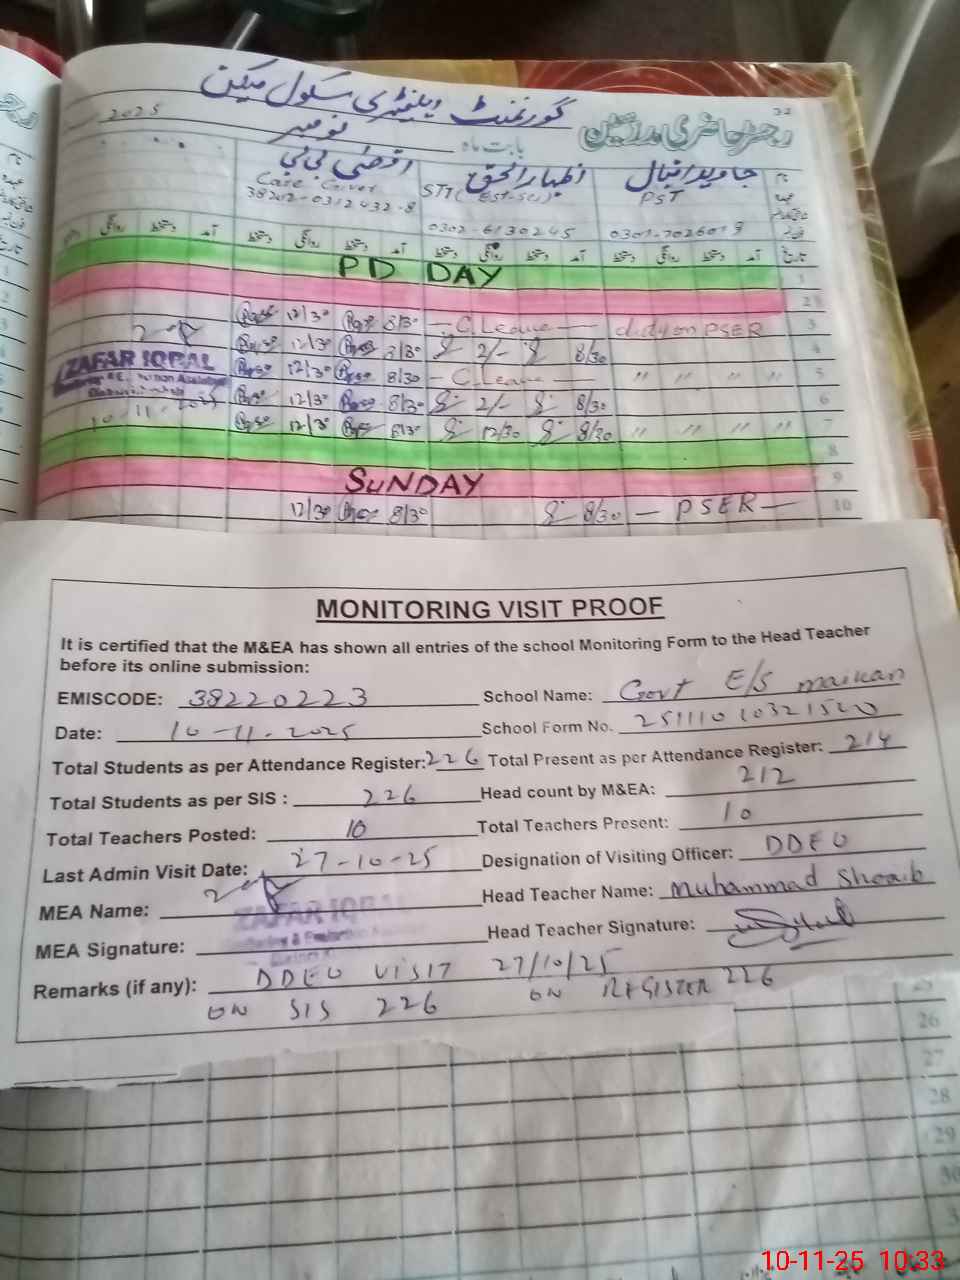 گورنمنٹ ایلیمنٹری سکول میکن
32
رجسٹر حاضری مدرسین
بابت ماہ
نومبر
2025
نام
جاوید اقبال
اظہار الحق
اقصٰی بی بی
PST
Care Giver
38202-0312432-8
0301-7026019
0302-6130245
تاریخ
آمد
دستخط
روانگی
دستخط
آمد
دستخط
روانگی
دستخط
آمد
دستخط
روانگی
دستخط
آمد
دستخط
روانگی
PD DAY
1
2
12/30 8/30 — C.Leave — duty on PSER 3
12/30 8/30 2/- 8/30 4
12/30 8/30 — C.Leave — " " " " 5
12/30 8/30 2/- 8/30 6
12/30 8/30 12/30 8/30 " " " " 7
8
SUNDAY 9
12/30 8/30 8/30 — PSER — 10
ZAFAR IQBAL
10-11-2025
MONITORING VISIT PROOF
It is certified that the M&EA has shown all entries of the school Monitoring Form to the Head Teacher
before its online submission:
EMISCODE: 38220223 School Name: Govt E/S maikan
Date: 10-11-2025 School Form No. 25111010321520
Total Students as per Attendance Register: 226 Total Present as per Attendance Register: 214
Total Students as per SIS : 226 Head count by M&EA: 212
Total Teachers Posted: 10 Total Teachers Present: 10
Last Admin Visit Date: 27-10-25 Designation of Visiting Officer: DDEO
MEA Name: Head Teacher Name: Muhammad Shoaib
ZAFAR IQBAL
MEA Signature: Head Teacher Signature:
Remarks (if any): DDEO VISIT 27/10/25
ON SIS 226 ON REGISTER 226
25
26
27
28
29
30
10-11-25 10:33